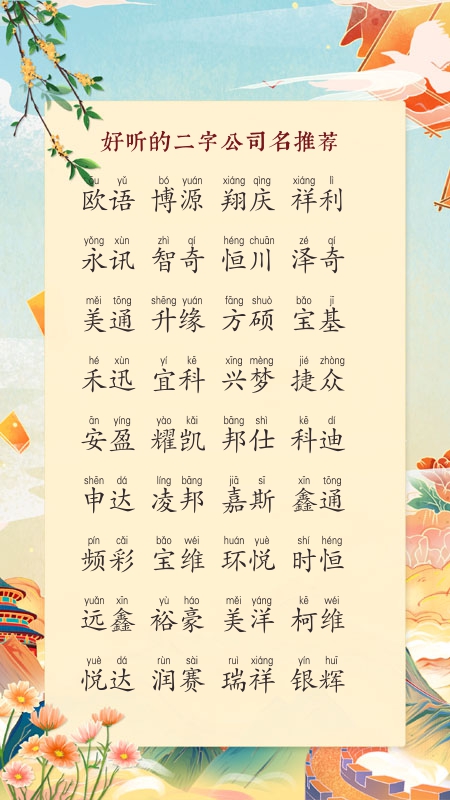 好听的二字公司名推荐
ōu yǔ bó yuán xiáng qìng xiáng lì
欧语 博源 翔庆 祥利
yǒng xùn zhì qí héng chuān zé qí
永讯 智奇 恒川 泽奇
měi tōng shēng yuán fāng shuò bǎo jī
美通 升缘 方硕 宝基
hé xùn yí kē xīng mèng jié zhòng
禾迅 宜科 兴梦 捷众
ān yíng yào kǎi bāng shì kē dí
安盈 耀凯 邦仕 科迪
shēn dá líng bāng jiā sī xīn tōng
申达 凌邦 嘉斯 鑫通
pín cǎi bǎo wéi huán yuè shí héng
频彩 宝维 环悦 时恒
yuǎn xīn yù háo měi yáng kē wéi
远鑫 裕豪 美洋 柯维
yuè dá rùn sài ruì xiáng yín huī
悦达 润赛 瑞祥 银辉